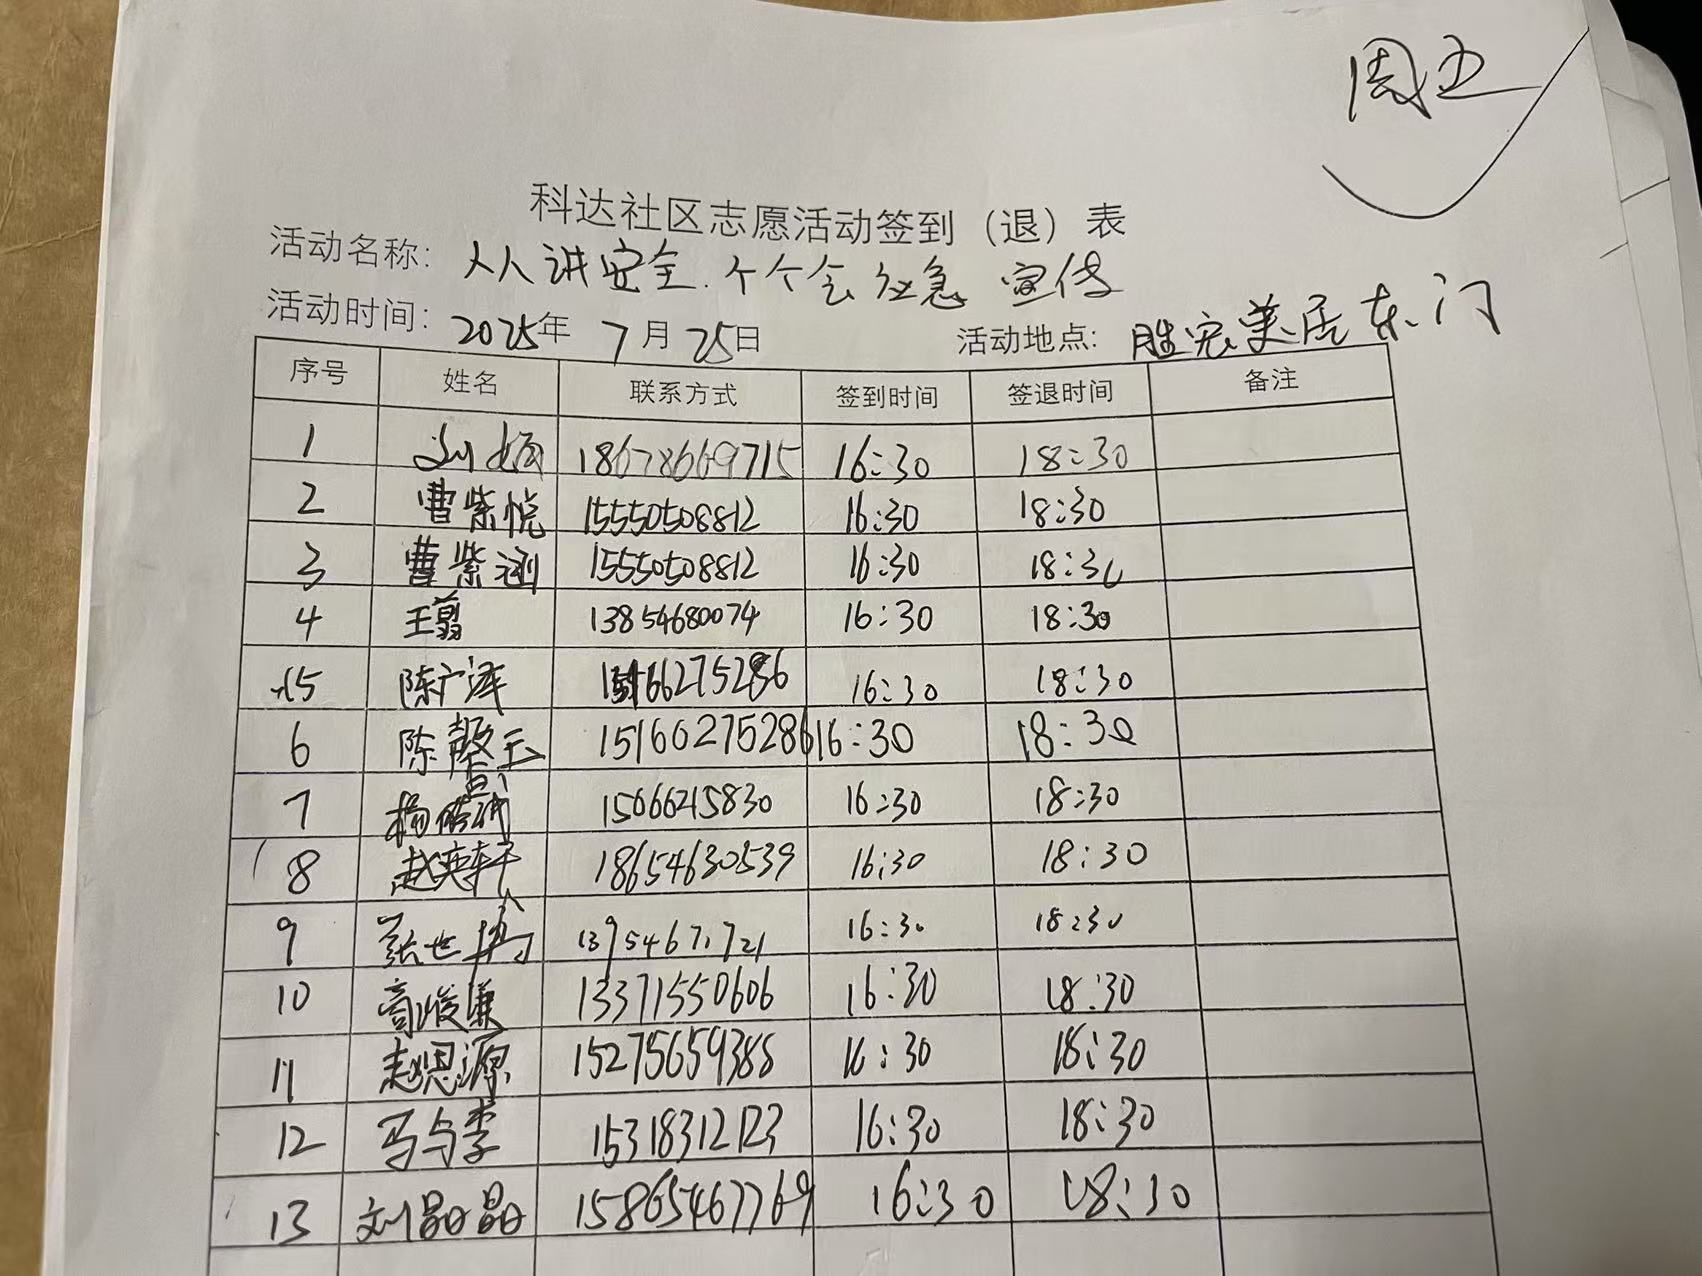 周五
科达社区志愿活动签到（退）表
活动名称：人人讲安全.个个会应急 宣传
活动时间：2025年 7月 25日 活动地点：胜宏美居东门
序号 姓名 联系方式 签到时间 签退时间 备注
1 刘 18678669715 16:30 18:30
2 曹紫悦 15550508812 16:30 18:30
3 曹紫涵 15550508812 16:30 18:30
4 王翦 13854680074 16:30 18:30
15 陈广泽 15166275286 16:30 18:30
6 陈馨玉 15166275286 16:30 18:30
7 杨 15066215830 16:30 18:30
8 赵奕轩 18654630539 16:30 18:30
9 张世 13954671721 16:30 18:30
10 高峻廉 13371550606 16:30 18:30
11 赵思源 15275659388 16:30 18:30
12 马与李 15318312123 16:30 18:30
13 刘晶晶 15865467769 16:30 18:30